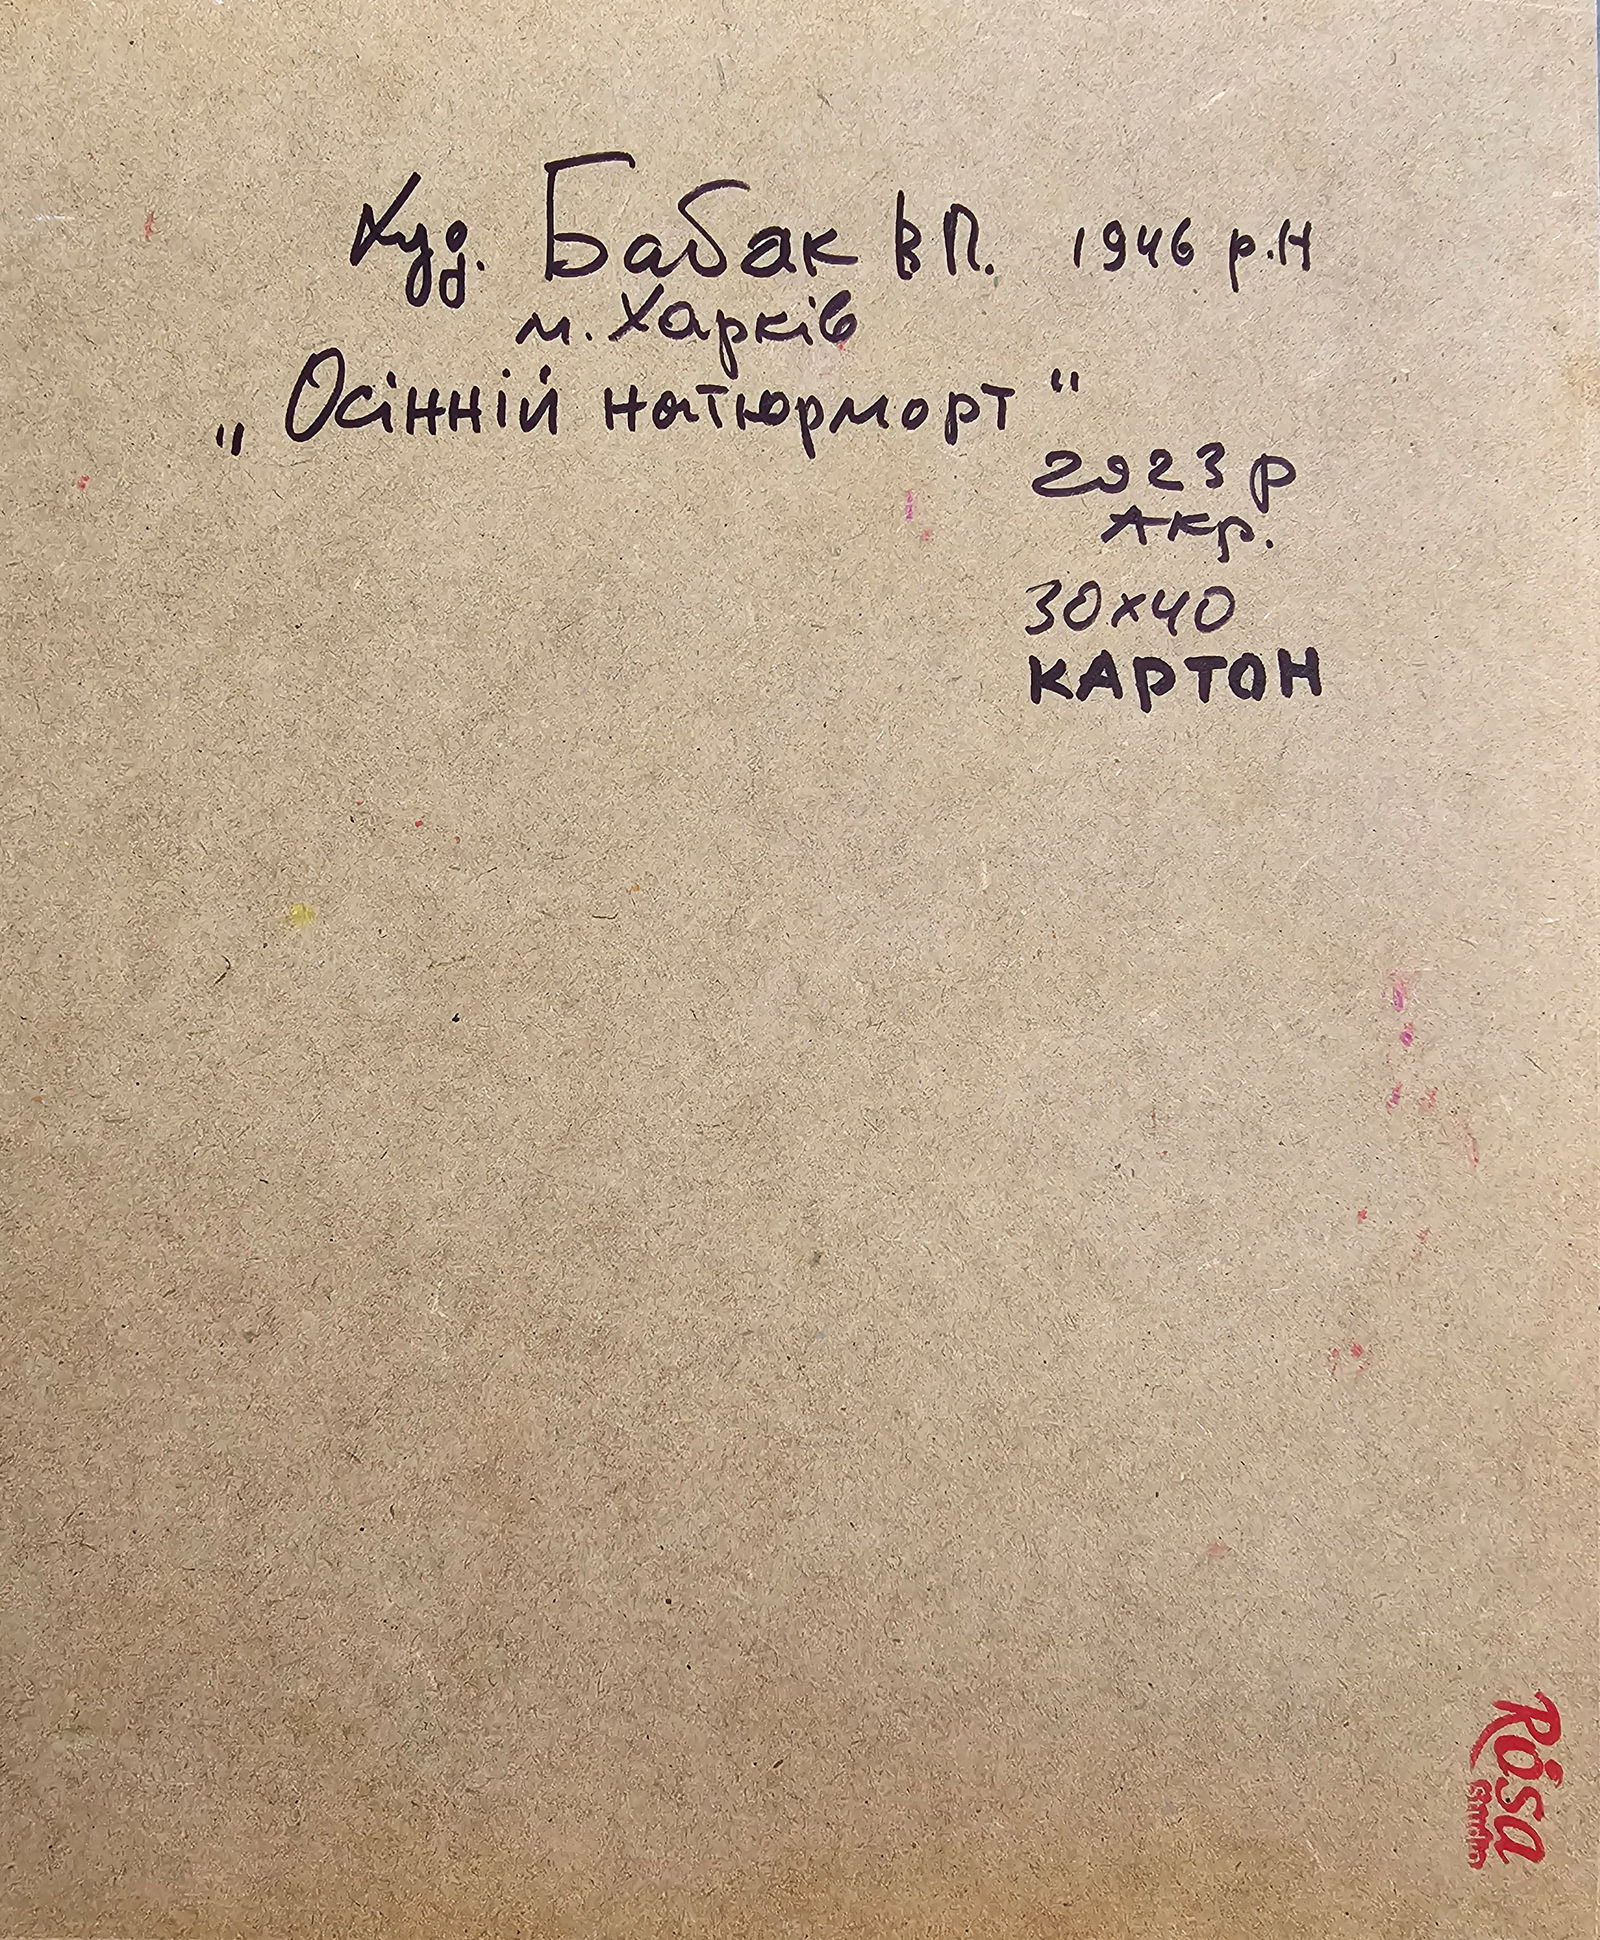 Худ. Бабак В П. 1946 р.н
м. Харків
„Осінній натюрморт"
2023 р
Акр.
30х40
КАРТОН
Rosa
Studio